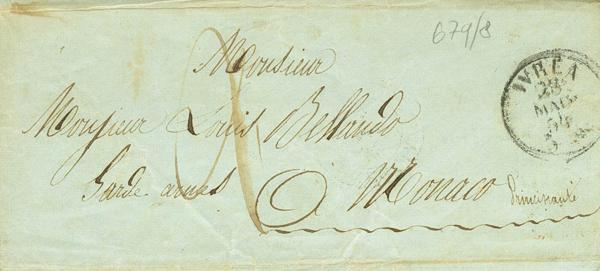 679/8
Monsieur
Monsieur Louis Bellando
Garde-armes
à Monaco
Principauté
IVREA
28
MAG
54